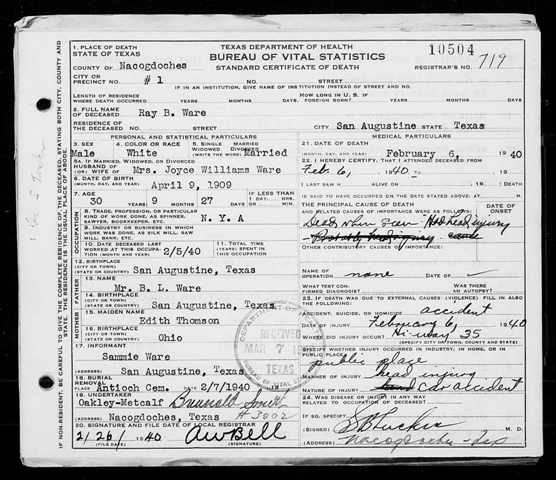 1. PLACE OF DEATH
STATE OF TEXAS
TEXAS DEPARTMENT OF HEALTH
BUREAU OF VITAL STATISTICS
STANDARD CERTIFICATE OF DEATH
10504
REGISTRAR'S NO. 719
COUNTY OF Nacogdoches
CITY OR
PRECINCT NO. #1
STREET
IF IN AN INSTITUTION, GIVE NAME OF INSTITUTION INSTEAD OF STREET AND NO.
LENGTH OF RESIDENCE
WHERE DEATH OCCURRED YEARS MONTHS DAYS
HOW LONG IN U. S. IF
FOREIGN BORN? YEARS MONTHS DAYS
2. FULL NAME
OF DECEASED Ray B. Ware
RESIDENCE OF
THE DECEASED STREET NO. CITY San Augustine STATE Texas
PERSONAL AND STATISTICAL PARTICULARS
3. SEX
Male
4. COLOR OR RACE
White
5. SINGLE MARRIED
WIDOWED DIVORCED
Married
5A. IF MARRIED, WIDOWED, OR DIVORCED
HUSBAND OF
OR WIFE OF Mrs. Joyce Williams Ware
6. DATE OF BIRTH
(MONTH, DAY, AND YEAR) April 9, 1909
7. AGE YEARS MONTHS DAYS IF LESS THAN 1 DAY
30 9 27 HRS. MIN.
8. TRADE, PROFESSION OR PARTICULAR
KIND OF WORK DONE, AS SPINNER,
SAWYER, BOOKKEEPER, ETC. N. Y. A
9. INDUSTRY OR BUSINESS IN WHICH
WORK WAS DONE, AS SILK MILL, SAW
MILL, BANK, ETC.
10. DATE DECEASED LAST
WORKED AT THIS OCCUPATION
2/5/40
11. TOTAL TIME
OCCUPATION
12. BIRTHPLACE
(CITY OR TOWN)
(STATE OR COUNTRY) San Augustine, Texas
FATHER
13. NAME Mr. B. L. Ware
14. BIRTHPLACE
(CITY OR TOWN)
(STATE OR COUNTRY) San Augustine, Texas
MOTHER
15. MAIDEN NAME
Edith Thomson
16. BIRTHPLACE
(CITY OR TOWN)
(STATE OR COUNTRY) Ohio
17. INFORMANT
Sammie Ware
(ADDRESS) San Augustine, Texas
18. BURIAL
REMOVAL
PLACE Antioch Cem. DATE 2/7/1940
19. UNDERTAKER
Oakley-Metcalf
(ADDRESS) Nacogdoches, Texas # 3002
20. SIGNATURE AND FILE DATE OF LOCAL REGISTRAR
2/26/1940 AW Bell
(FILE DATE) (SIGNATURE)
MEDICAL PARTICULARS
21. DATE OF DEATH
February 6, 1940
22. I HEREBY CERTIFY, THAT I ATTENDED DECEASED FROM
Feb. 6, 1940, TO 19
I LAST SAW H ALIVE ON 19
THE PRINCIPAL CAUSE OF DEATH
AND RELATED CAUSES OF IMPORTANCE WERE
DATE OF
ONSET
Dead when seen Head injury
OTHER CONTRIBUTORY CAUSES
NAME OF
OPERATION none DATE OF
WHAT TEST CONFIRMED DIAGNOSIS? WAS THERE AN AUTOPSY
23. IF DEATH WAS DUE TO EXTERNAL CAUSES (VIOLENCE) FILL IN ALSO THE FOLLOWING:
ACCIDENT, SUICIDE, OR HOMICIDE? accident
DATE OF INJURY February 6, 1940
WHERE DID INJURY OCCUR Hi-way 35
(SPECIFY CITY OR TOWN, COUNTY AND STATE)
SPECIFY WHETHER INJURY OCCURRED IN INDUSTRY, IN HOME, OR IN
PUBLIC PLACE public place
MANNER OF INJURY head injury
NATURE OF INJURY car accident
24. WAS DISEASE OR INJURY IN ANY WAY RELATED TO OCCUPATION OF DECEASED?
IF SO, SPECIFY
(SIGNED) M. D.
(ADDRESS) Nacogdoches - Tex
RECEIVED
MAR 7
TEXAS